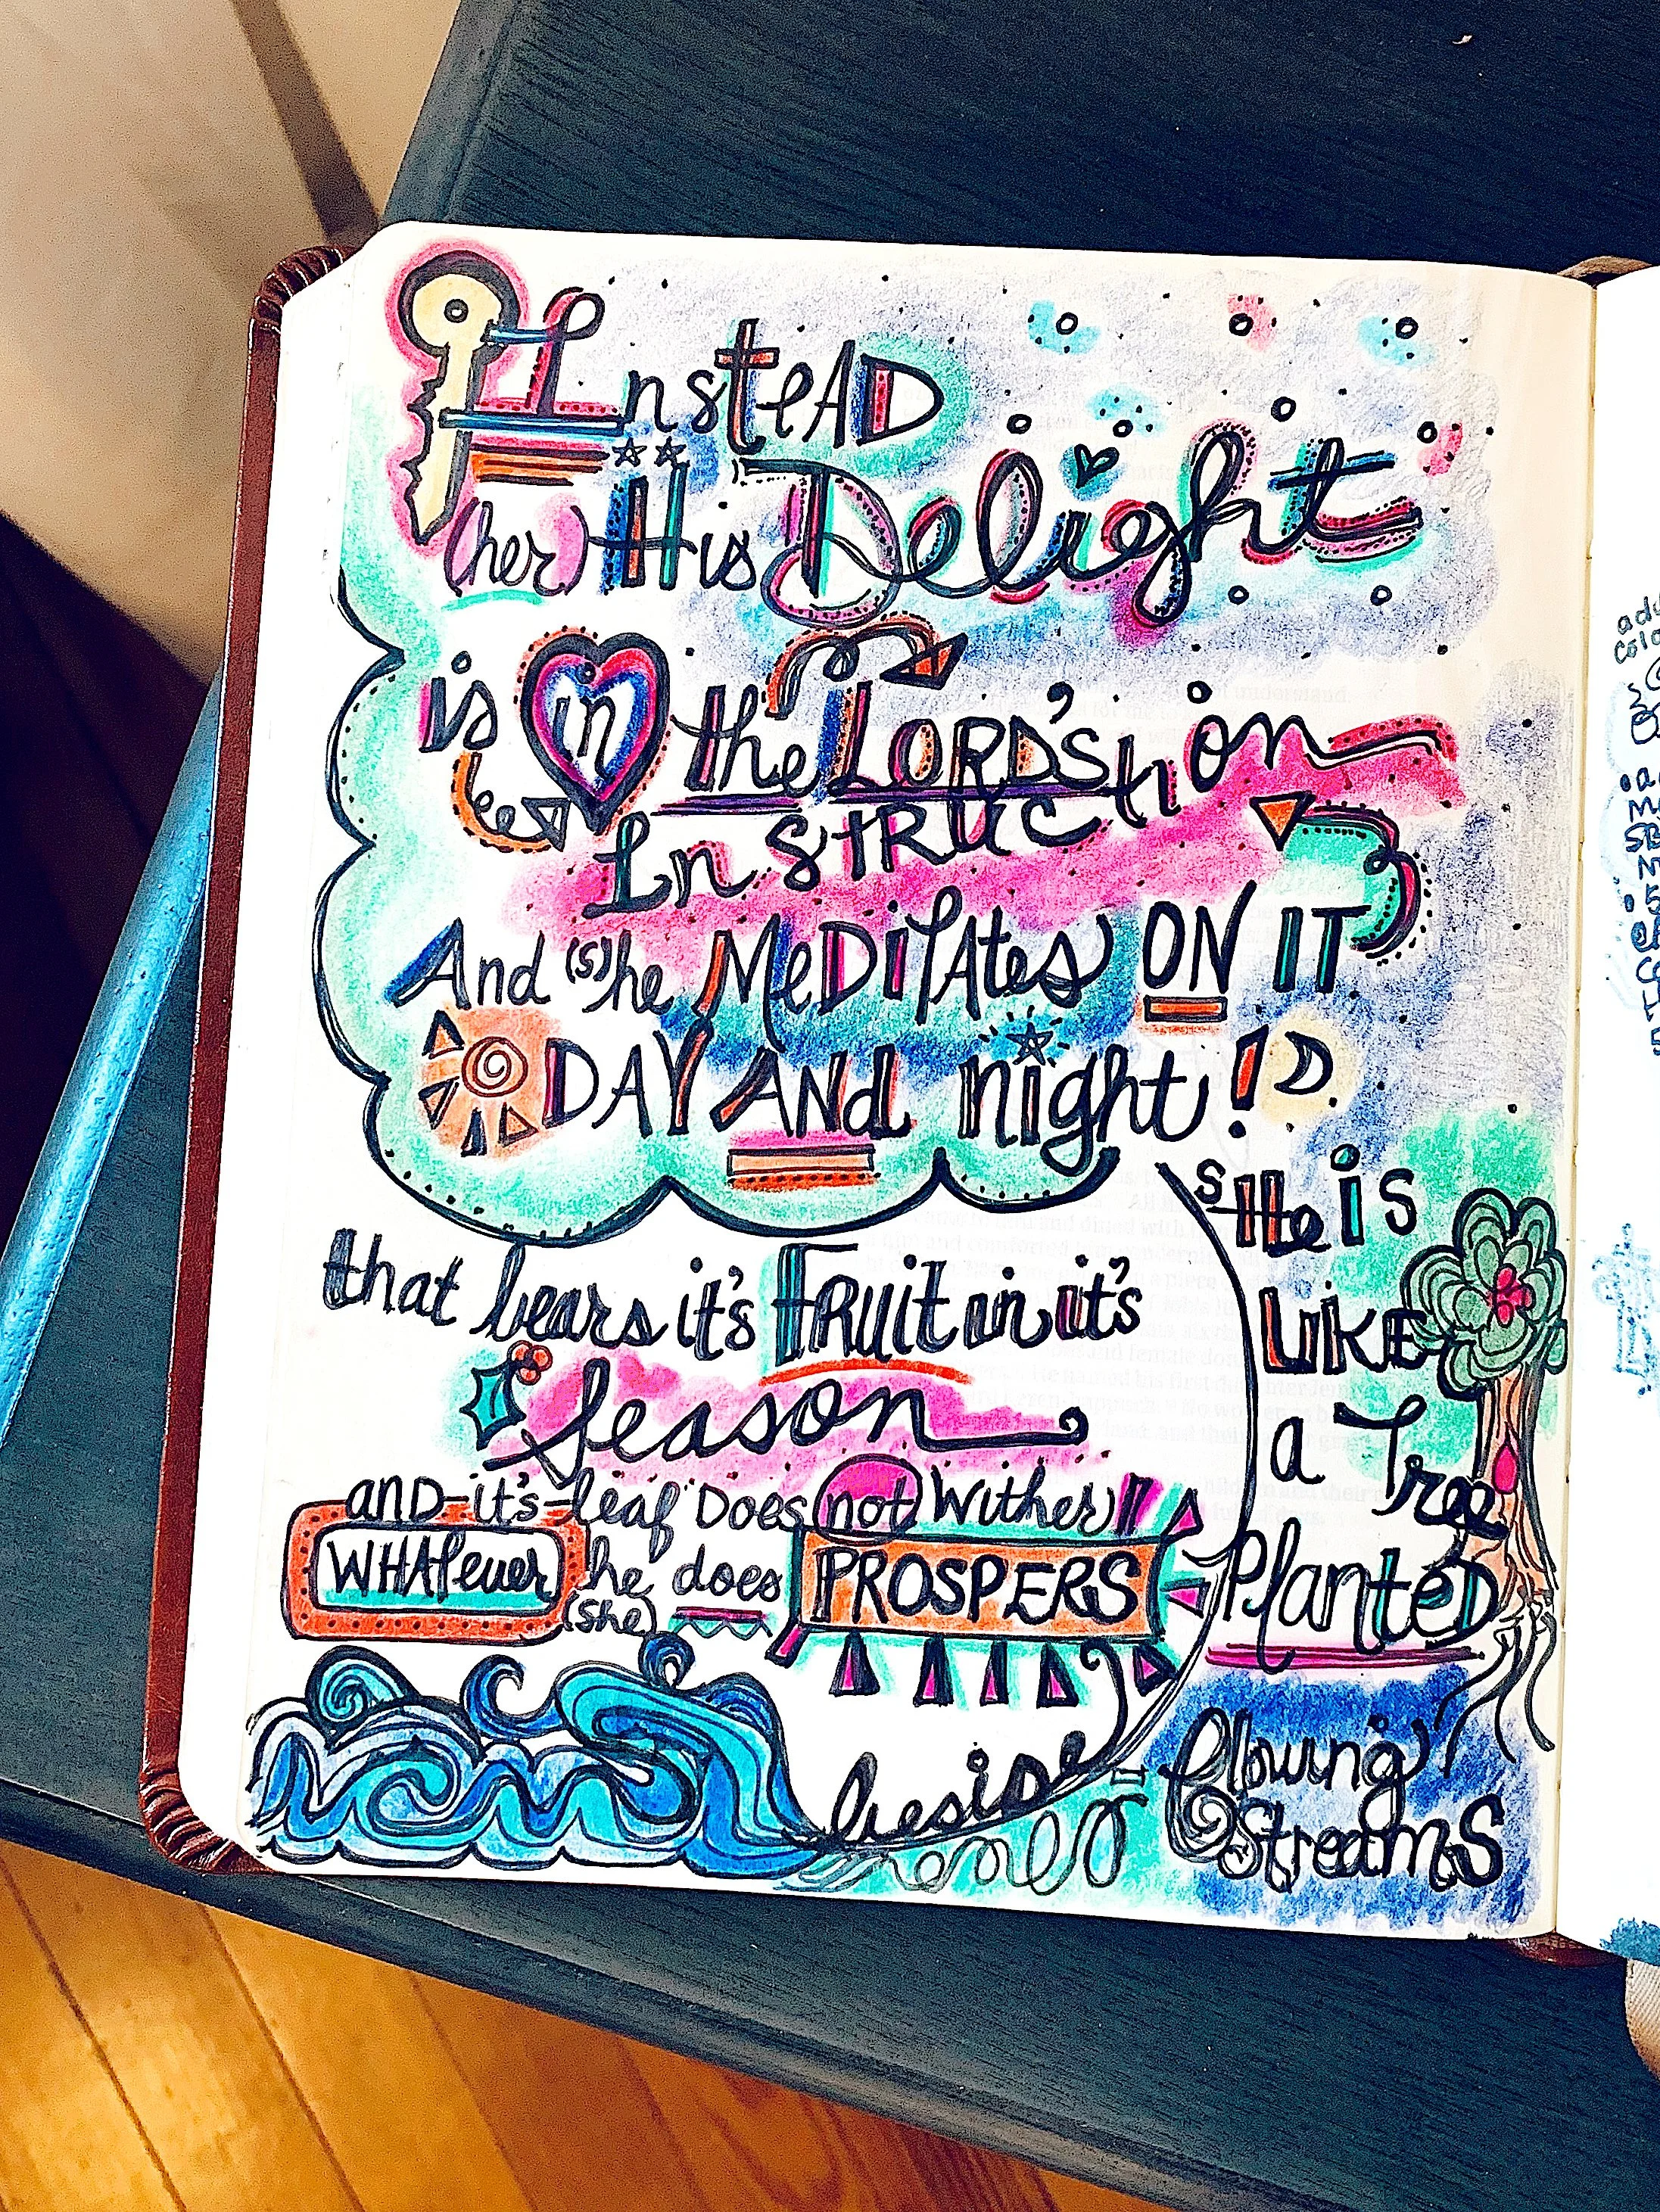 Instead
(her) His Delight
is in the LORD'S
Instruction
And (s)he MeDitAtes ON IT
DAY AND night!
sHe is
LIKE
a Tree
PlanteD
beside
flowing
Streams
that bears it's FRuit in it's
Season
anD it's leaf Does not Wither
WHATever he does PROSPERS
(she)